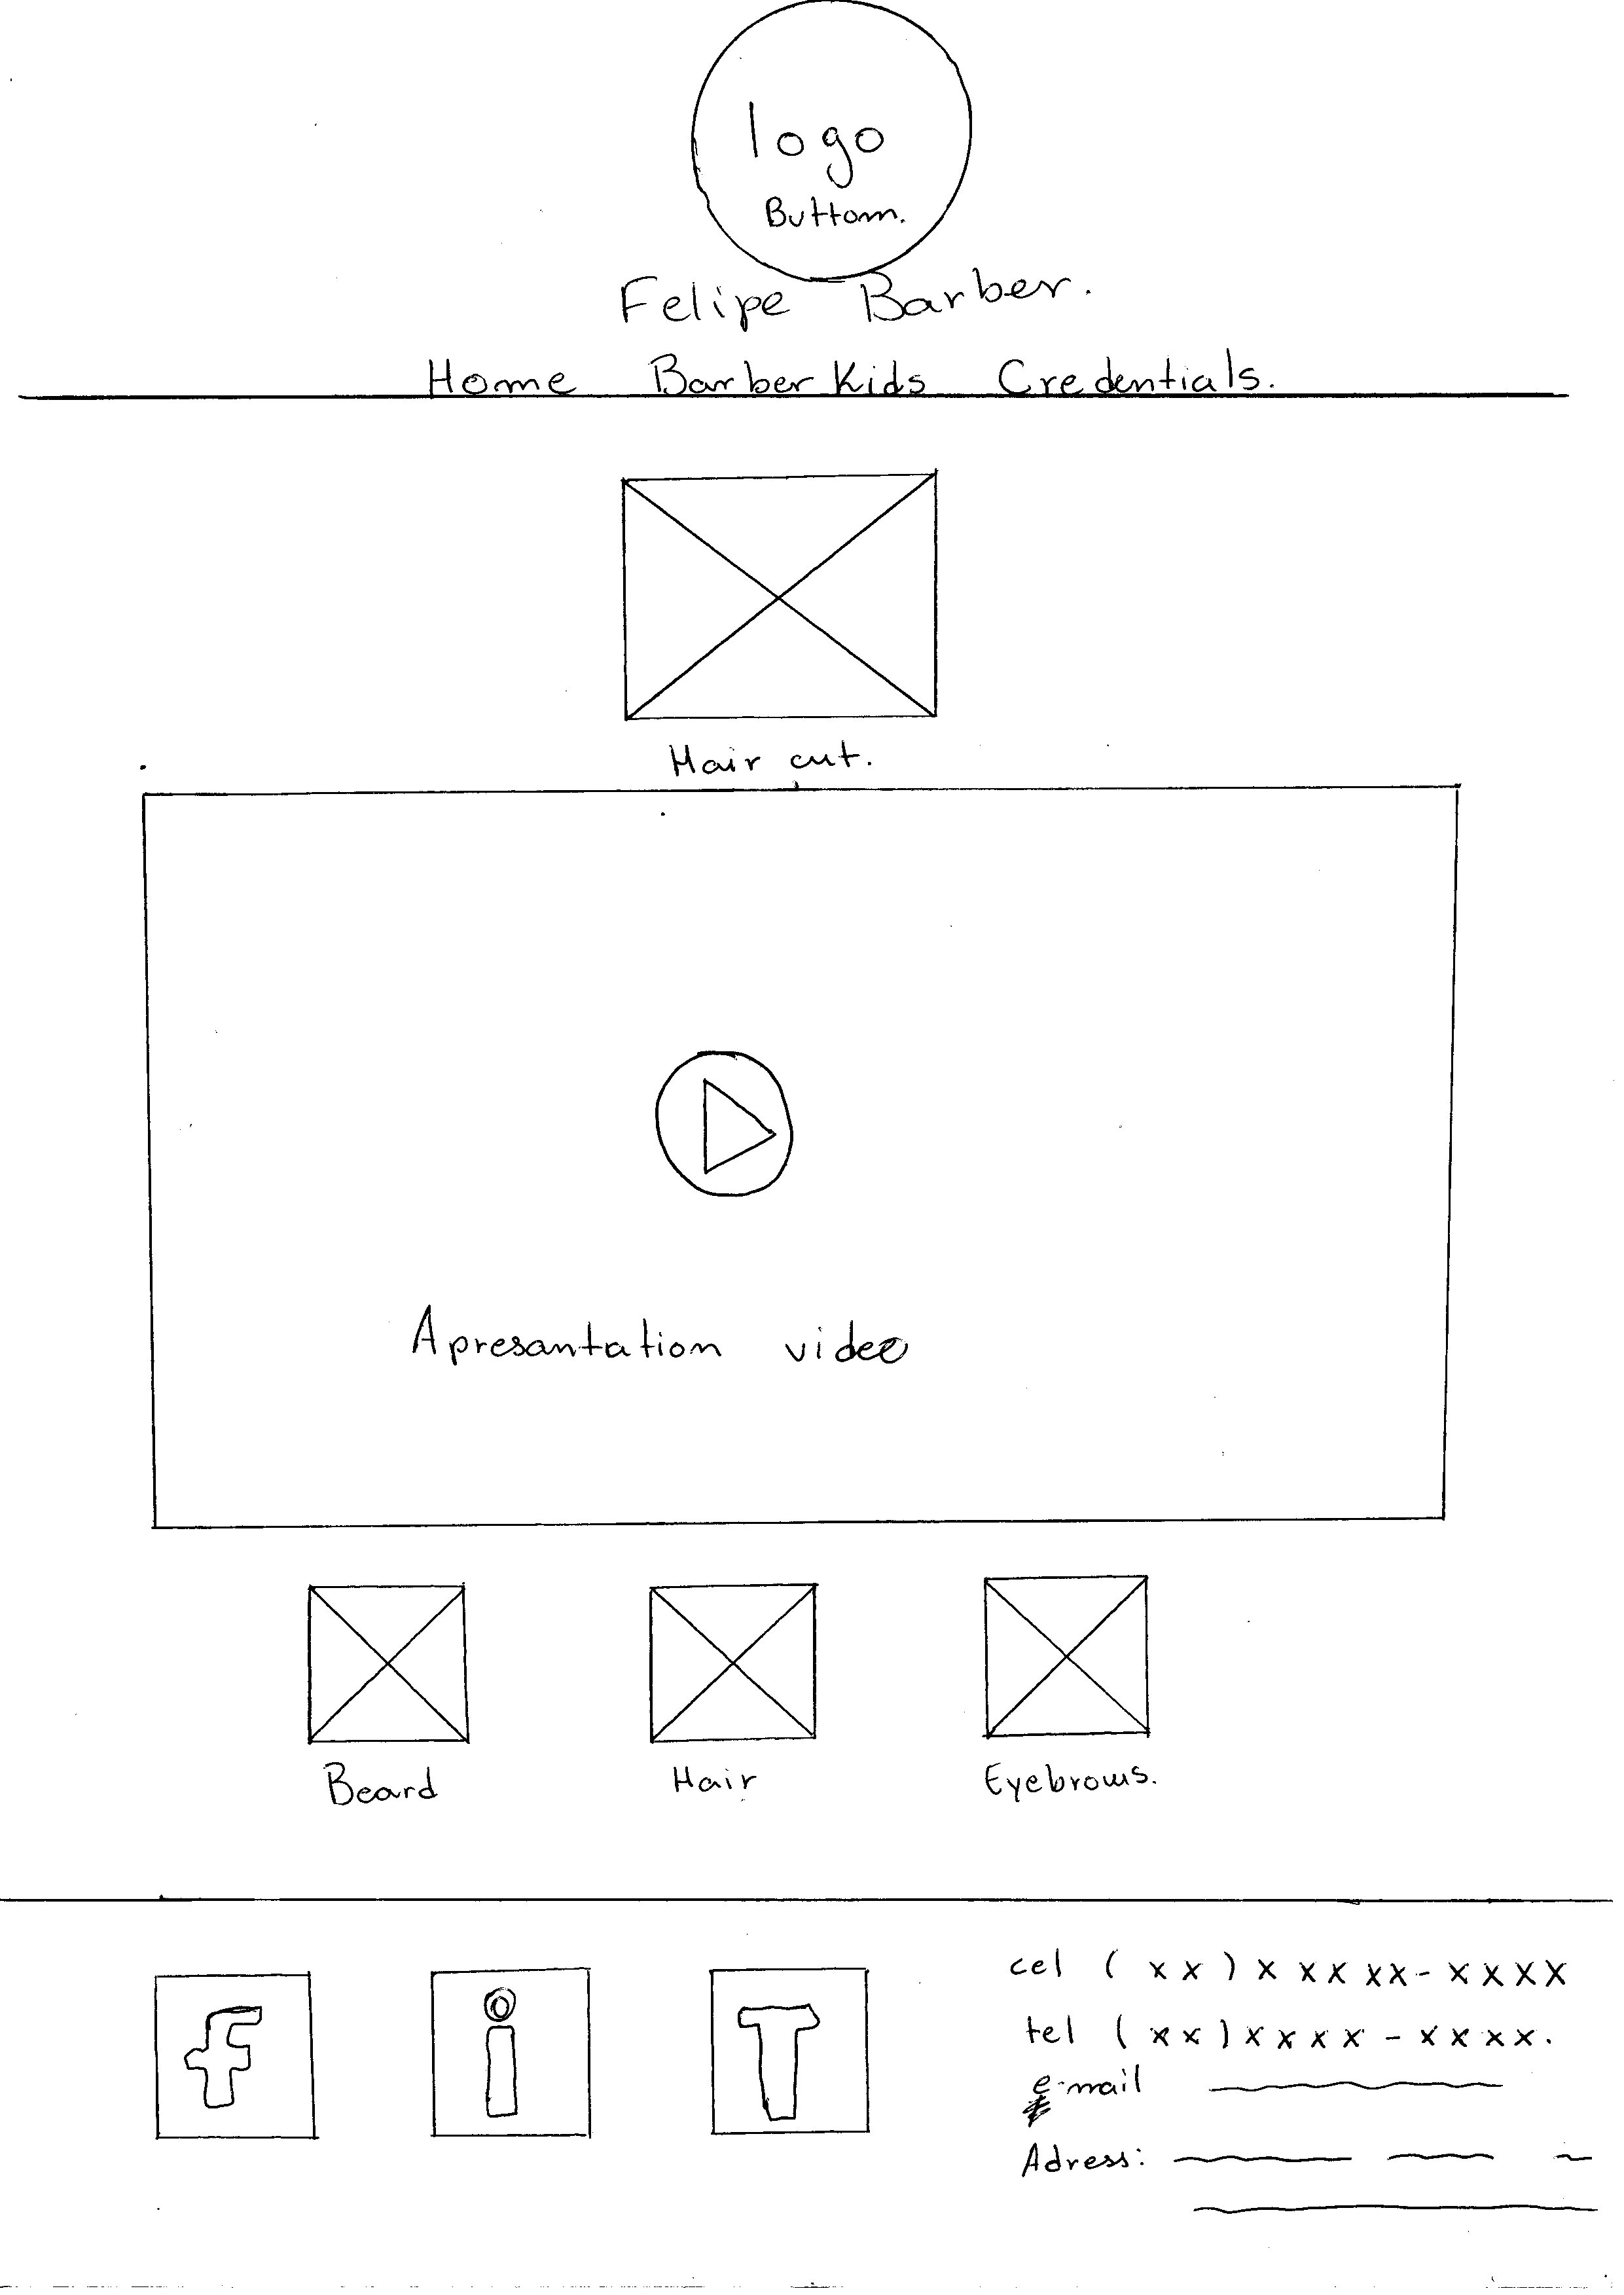 logo
Buttom.
Felipe Barber.
Home Barber Kids Credentials.
Hair cut.
Apresantation video
Beard Hair Eyebrows.
f i T
cel (xx) x xx xx - xxxx
tel (xx) xxxx - xxxx.
e-mail
Adress: